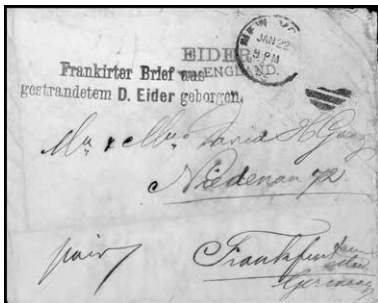 NEW YORK
JAN 22
9 PM
EIDER
ENGLAND.
Frankirter Brief aus
gestrandetem D. Eider geborgen.
Mr & Mrs David H
Niedenau 72.
Frankfurt
Germany